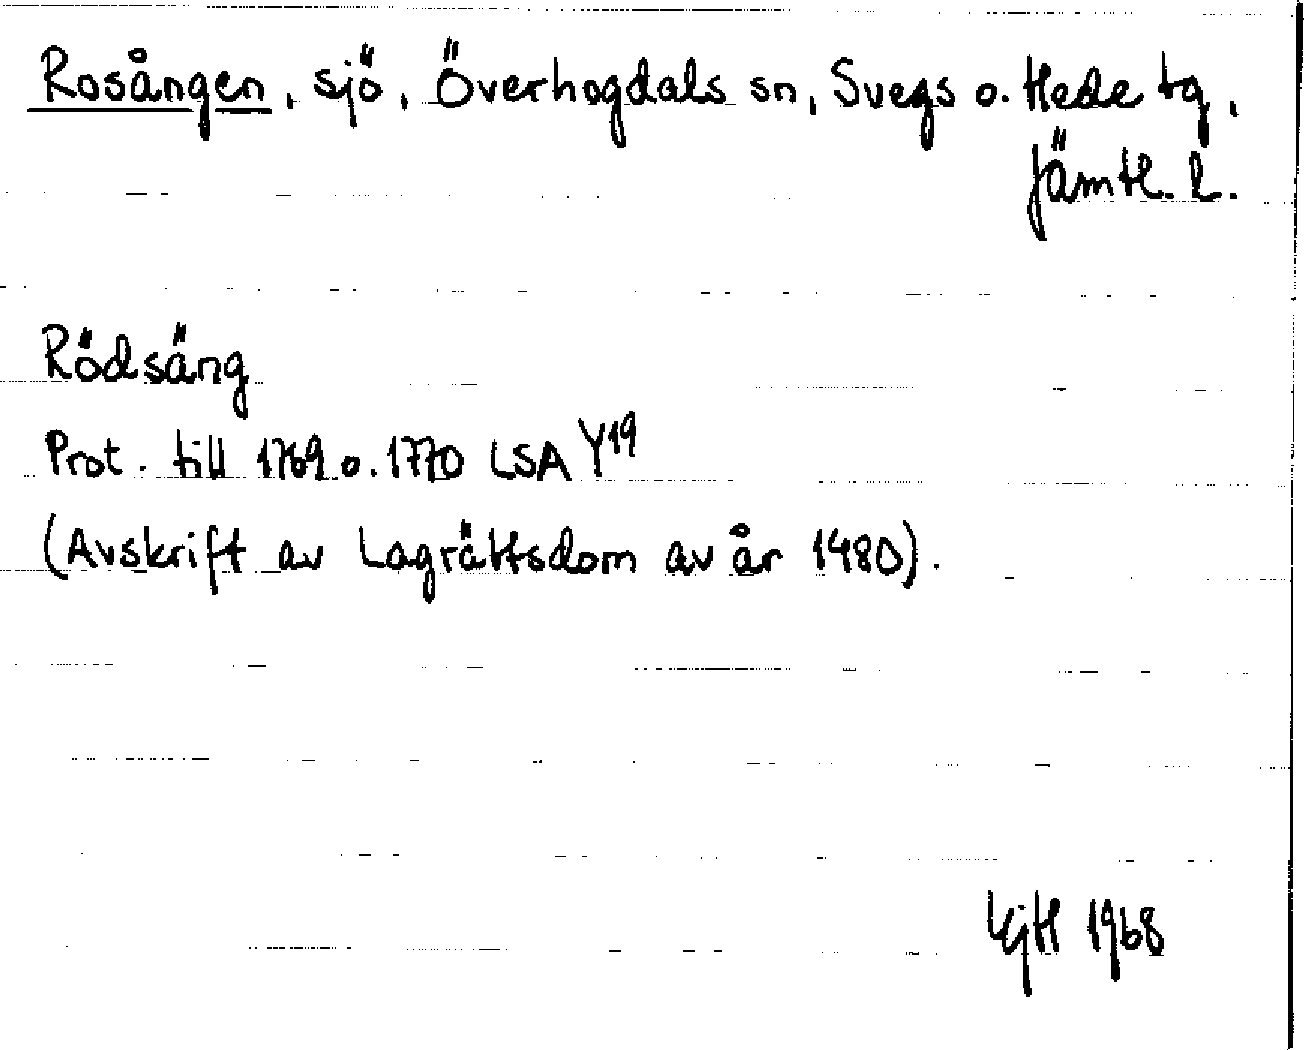 Rosången, sjö, Överhogdals sn, Svegs o. Hede tg,
Jämtl. l.
Rödsäng
Prot. till 1769 o. 1770 LSA Y19
(Avskrift av Lagrättsdom av år 1480).
1968